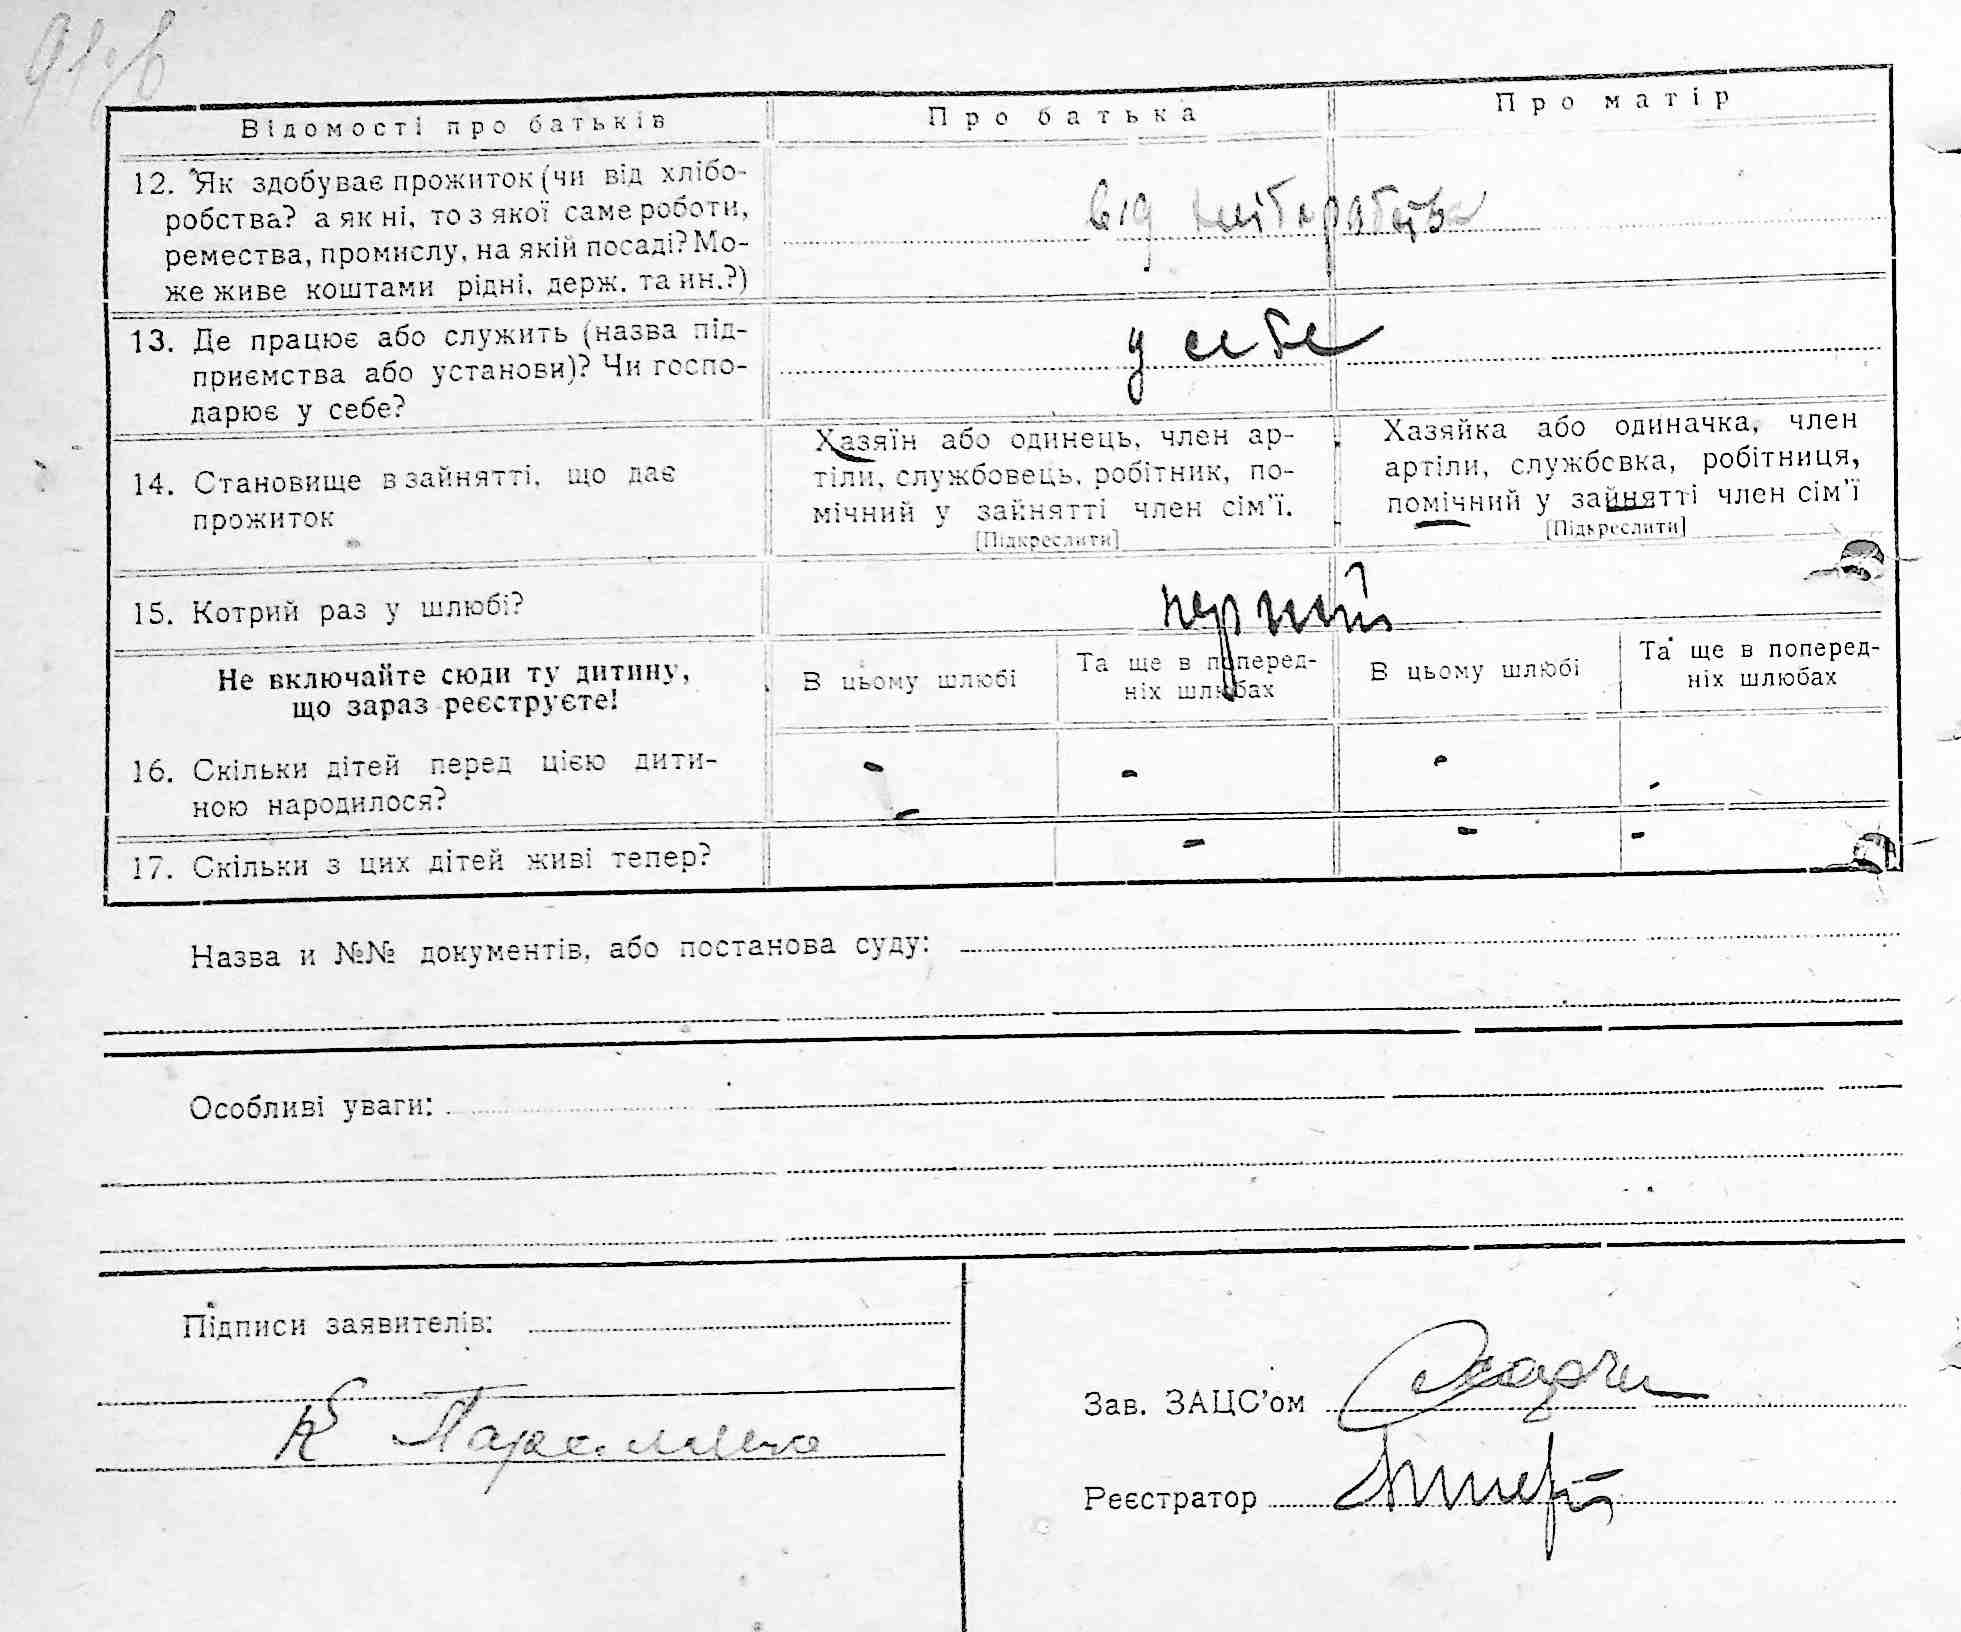 Відомості про батьків
Про батька
Про матір
12. Як здобуває прожиток (чи від хлібо-
робства? а як ні, то з якої саме роботи,
ремества, промислу, на якій посаді? Мо-
же живе коштами рідні, держ. та ин.?)
від хліборобства
13. Де працює або служить (назва під-
приємства або установи)? Чи госпо-
дарює у себе?
у себе
14. Становище в зайнятті, що дає
прожиток
Хазяїн або одинець, член ар-
тіли, службовець, робітник, по-
мічний у зайнятті член сім'ї.
[Підкреслити]
Хазяйка або одиначка, член
артіли, службовка, робітниця,
помічний у зайнятті член сім'ї
[Підкреслити]
15. Котрий раз у шлюбі?
перший
Не включайте сюди ту дитину,
що зараз реєструєте!
В цьому шлюбі
Та ще в поперед-
ніх шлюбах
В цьому шлюбі
Та ще в поперед-
ніх шлюбах
16. Скільки дітей перед цією дити-
ною народилося?
- - - -
17. Скільки з цих дітей живі тепер?
- - - -
Назва и №№ документів, або постанова суду:
Особливі уваги:
Підписи заявителів:
К
Зав. ЗАЦС'ом
Реєстратор